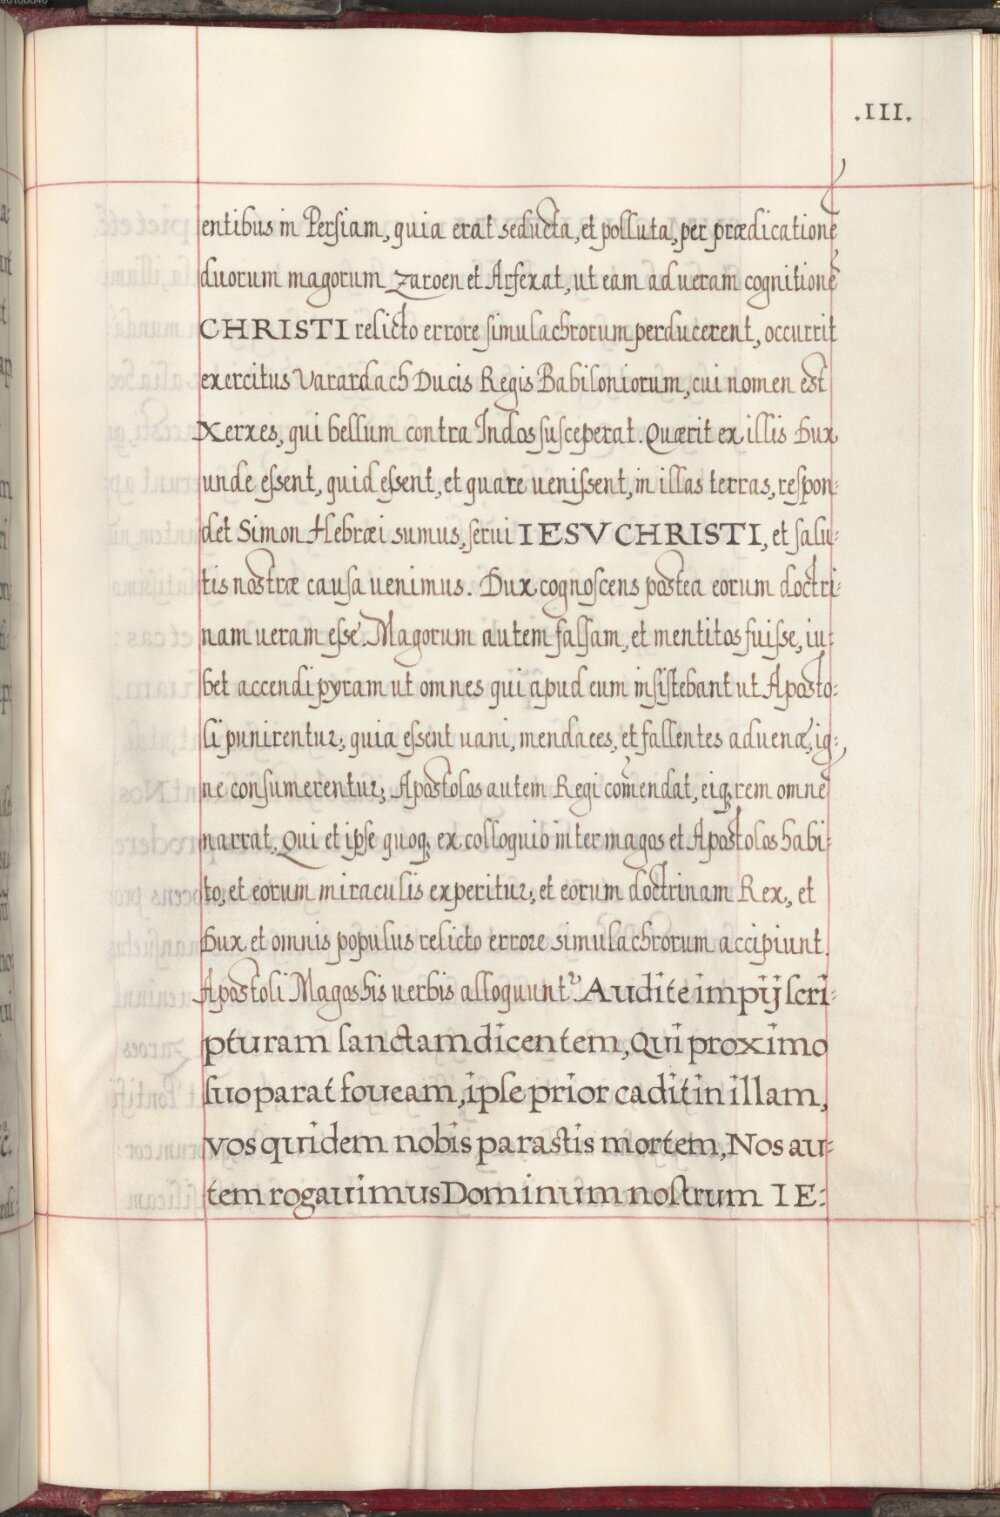 .III.
entibus in Persiam, quia erat seducta, et polluta, per prædicationẽ
duorum magorum Zaroen et Arfexat, ut eam ad ueram cognitionẽ
CHRISTI relicto errore simulachrorum perducerent, occurrit
exercitus Varardach Ducis Regis Babiloniorum, cui nomen est
Xerxes, qui bellum contra Indos susceperat. Quærit ex illis Dux
unde essent, quid essent, et quare uenissent, in illas terras, respon-
det Simon Hebræi sumus, serui IESV CHRISTI, et salu-
tis nostræ causa uenimus. Dux cognoscens postea eorum doctri-
nam ueram esse. Magorum autem falsam, et mentitos fuisse, iu-
bet accendi pyram ut omnes qui apud eum insistebant ut Aposto-
li punirentur; quia essent uani, mendaces, et fallentes aduenæ, ig-
ne consumerentur; Apostolos autem Regi com̃endat, eiq; rem omnẽ
narrat, Qui et ipse quoq; ex colloquio inter magos et Apostolos habi-
to, et eorum miraculis experitur; et eorum doctrinam Rex, et
Dux et omnis populus relicto errore simulachrorum accipiunt.
Apostoli Magos his uerbis alloquunt᷑. Audite impij scri-
pturam sanctam dicentem, Qui proximo
suo parat foueam, ipse prior cadit in illam,
vos quidem nobis parastis mortem, Nos au-
tem rogauimus Dominum nostrum IE-